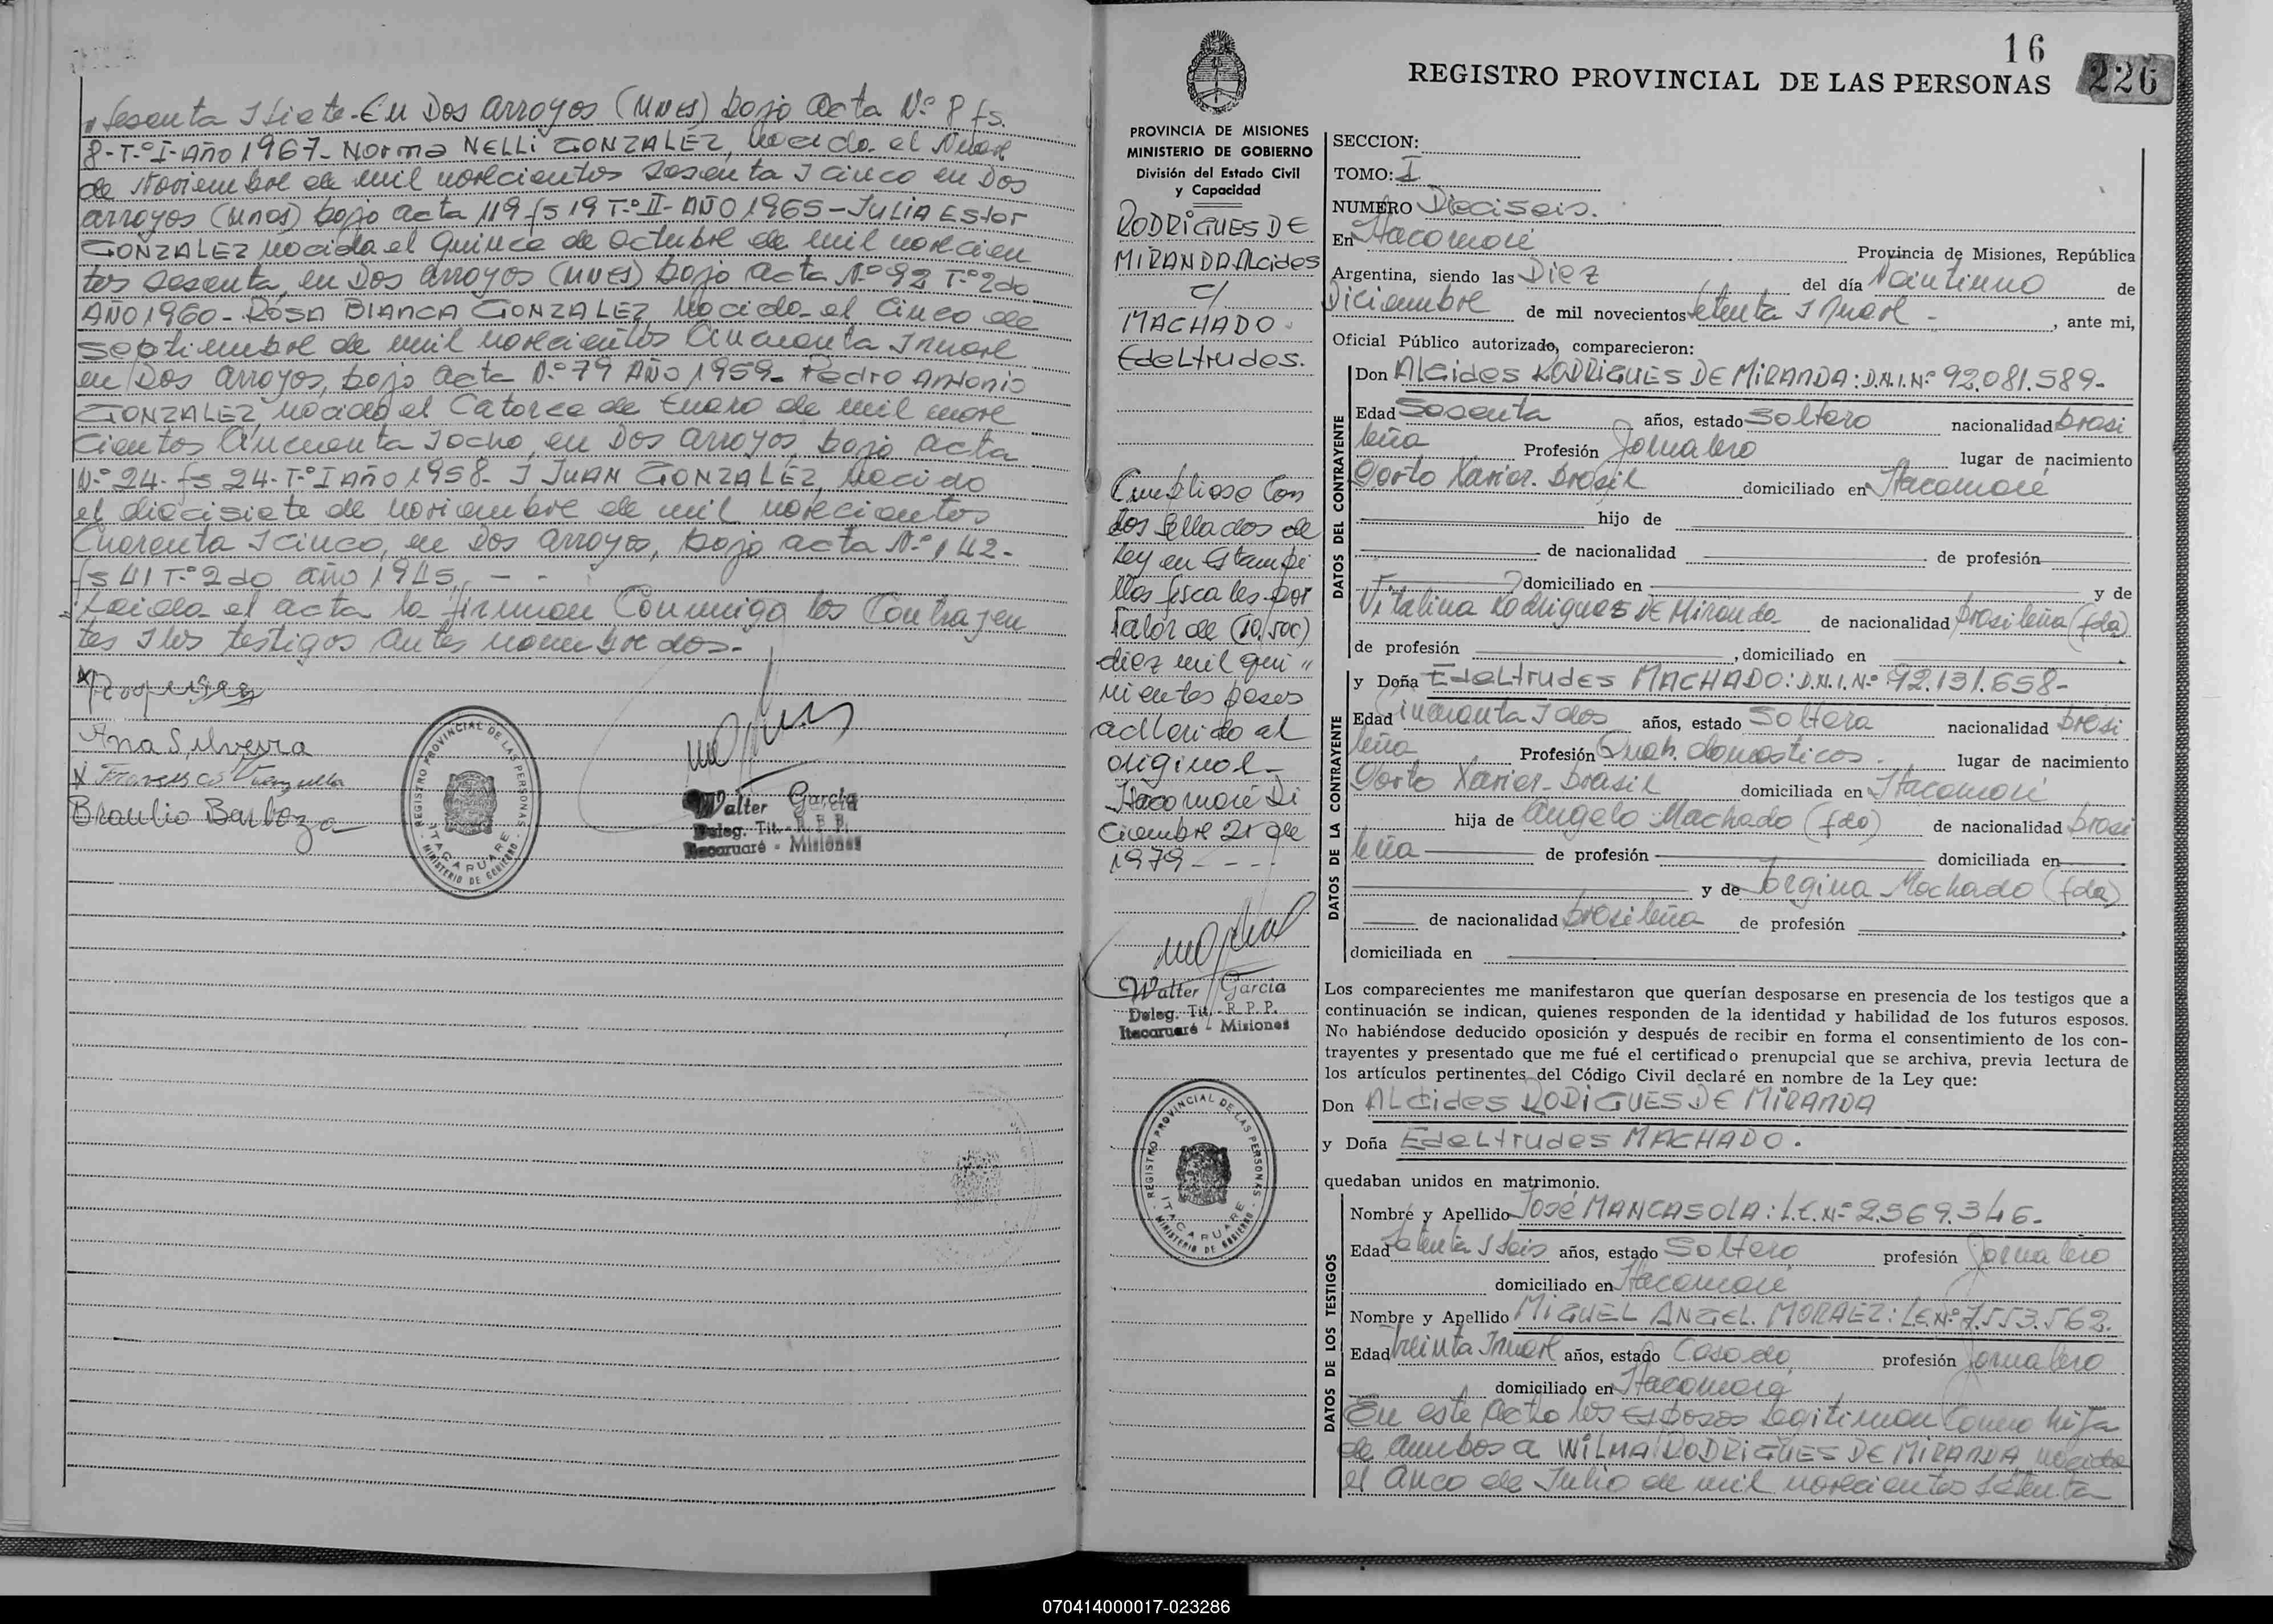 " Sesenta I Siete - En Dos Arroyos (Mnes) bajo Acta N.º 8 fs.
8 - T.º I - Año 1967 - Norma NELLI GONZALEZ, nacida el Nueve
de Noviembre de mil novecientos Sesenta I cinco en Dos
Arroyos (Mnes) bajo acta 119 fs 19 T.º II - AÑO 1965 - JULIA Ester
GONZALEZ nacida el Quince de Octubre de mil novecien
tos Sesenta, en Dos Arroyos (Mnes) bajo Acta N.º 92 T.º 2do
AÑO 1960 - ROSA BIANCA GONZALEZ Nacida el Cinco de
Septiembre de mil novecientos Cincuenta I nueve
en Dos Arroyos, bajo Acta N.º 79 AÑO 1959 - Pedro Antonio
GONZALEZ, nacido el Catorce de Enero de mil nove
cientos Cincuenta I ocho, en Dos Arroyos, bajo acta
N.º 24 - fs 24 - T.º I Año 1958 - I JUAN GONZALEZ, Nacido
el diecisiete de noviembre de mil novecientos
Cuarenta I cinco, en Dos Arroyos, bajo acta N.º 142 -
fs 41 T.º 2do año 1945, - -
" Leida el acta la firman Conmigo los Contrayen
tes I los testigos antes nombrados -
Ana Silveira
Braulio Barboza
REGISTRO PROVINCIAL DE LAS PERSONAS
ITACARUARE
MINISTERIO DE GOBIERNO
Walter García
Deleg. Tit. - R. P. P.
Itacaruaré - Misiones
PROVINCIA DE MISIONES
MINISTERIO DE GOBIERNO
División del Estado Civil
y Capacidad
RODRIGUES DE
MIRANDA Alcides
c/
MACHADO
Edeltrudes.
Cumpliose Con
los Sellados de
Ley en Estampi
llas fiscales por
Valor de (10,500)
diez mil qui "
nientos pesos
adherido al
original -
Itacaruaré Di
ciembre 21 de
1979 - - - -
Walter García
Deleg. Tit. - R. P. P.
Itacaruaré - Misiones
REGISTRO PROVINCIAL DE LAS PERSONAS
ITACARUARE
MINISTERIO DE GOBIERNO
16
226
REGISTRO PROVINCIAL DE LAS PERSONAS
SECCION:
TOMO: I
NUMERO Dieciseis.
En Itacaruaré Provincia de Misiones, República
Argentina, siendo las Diez del día Veintiuno de
Diciembre de mil novecientos Setenta I Nueve - , ante mi,
Oficial Público autorizado, comparecieron:
DATOS DEL CONTRAYENTE
Don Alcides RODRIGUES DE MIRANDA: D.N.I. Nº 92.081.589 -
Edad Sesenta años, estado Soltero nacionalidad brasi
leña Profesión Jornalero lugar de nacimiento
Porto Xavier. Brasil domiciliado en Itacaruaré
hijo de
de nacionalidad de profesión
domiciliado en y de
Vitalina Rodrigues DE Miranda de nacionalidad brasileña (fda)
de profesión , domiciliado en
DATOS DE LA CONTRAYENTE
y Doña Edeltrudes MACHADO: D.N.I. Nº 92.131.658 -
Edad Cincuenta I dos años, estado Soltera nacionalidad brasi
leña Profesión Queh. domesticos. lugar de nacimiento
Porto Xavier - Brasil domiciliada en Itacaruaré
hija de Angelo Machado (fdo) de nacionalidad brasi
leña de profesión domiciliada en
y de Jorgina Machado (fda)
de nacionalidad brasileña de profesión
domiciliada en
Los comparecientes me manifestaron que querían desposarse en presencia de los testigos que a
continuación se indican, quienes responden de la identidad y habilidad de los futuros esposos.
No habiéndose deducido oposición y después de recibir en forma el consentimiento de los con-
trayentes y presentado que me fué el certificado prenupcial que se archiva, previa lectura de
los artículos pertinentes del Código Civil declaré en nombre de la Ley que:
Don Alcides RODRIGUES DE MIRANDA
y Doña Edeltrudes MACHADO.
quedaban unidos en matrimonio.
DATOS DE LOS TESTIGOS
Nombre y Apellido José MANCASOLA: L.E. Nº 2.569.346 -
Edad Setenta I Seis años, estado Soltero profesión Jornalero
domiciliado en Itacaruaré
Nombre y Apellido MIGUEL ANGEL. MORAEZ: L.E. Nº 7.553.562.
Edad treinta I nueve años, estado Casado profesión Jornalero
domiciliado en Itacaruaré
En este Acto los Esposos Legitiman Como hija
de Ambos a WILMA RODRIGUES DE MIRANDA, nacida
el Cinco de Julio de mil novecientos Setenta
070414000017-023286